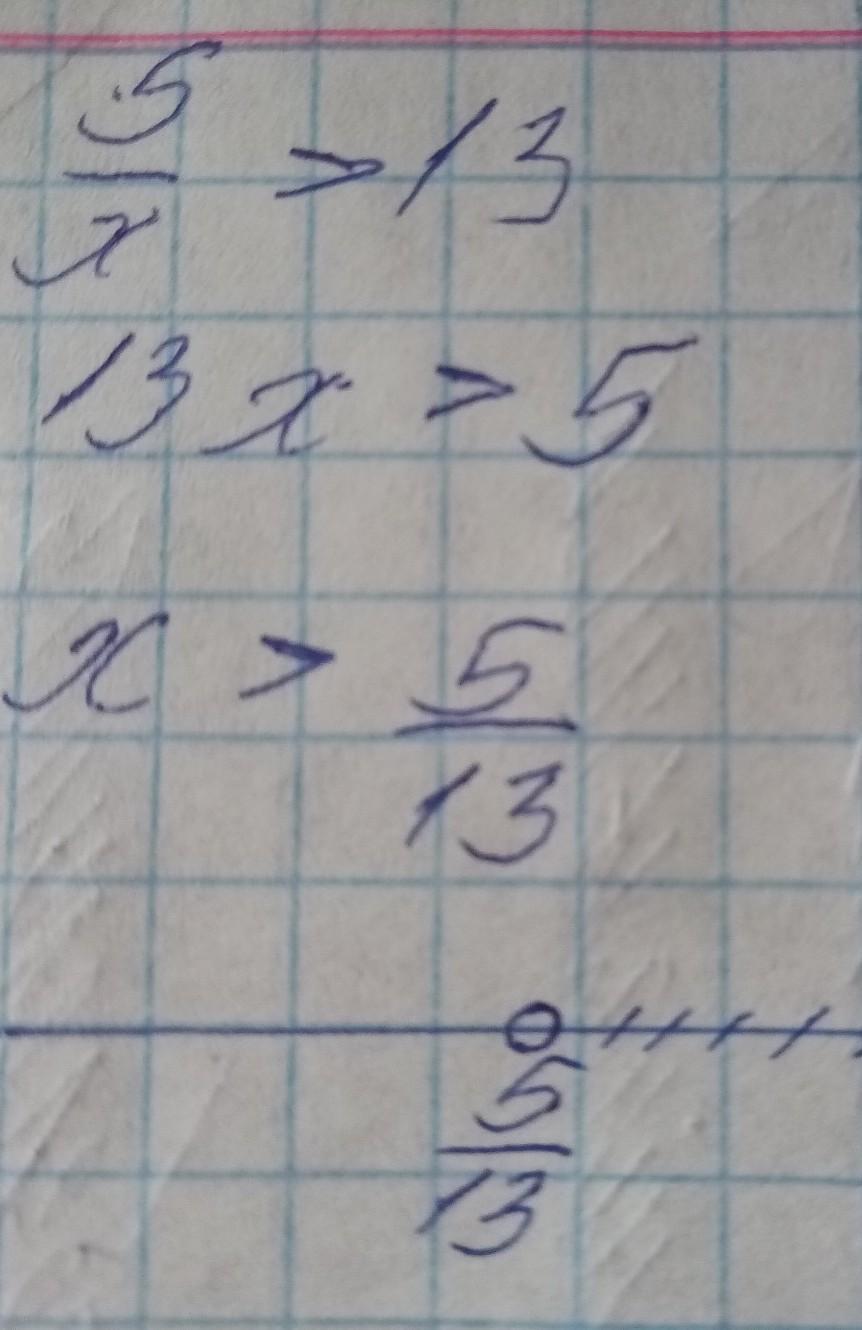 5/x > 13
13x > 5
x > 5/13
5/13